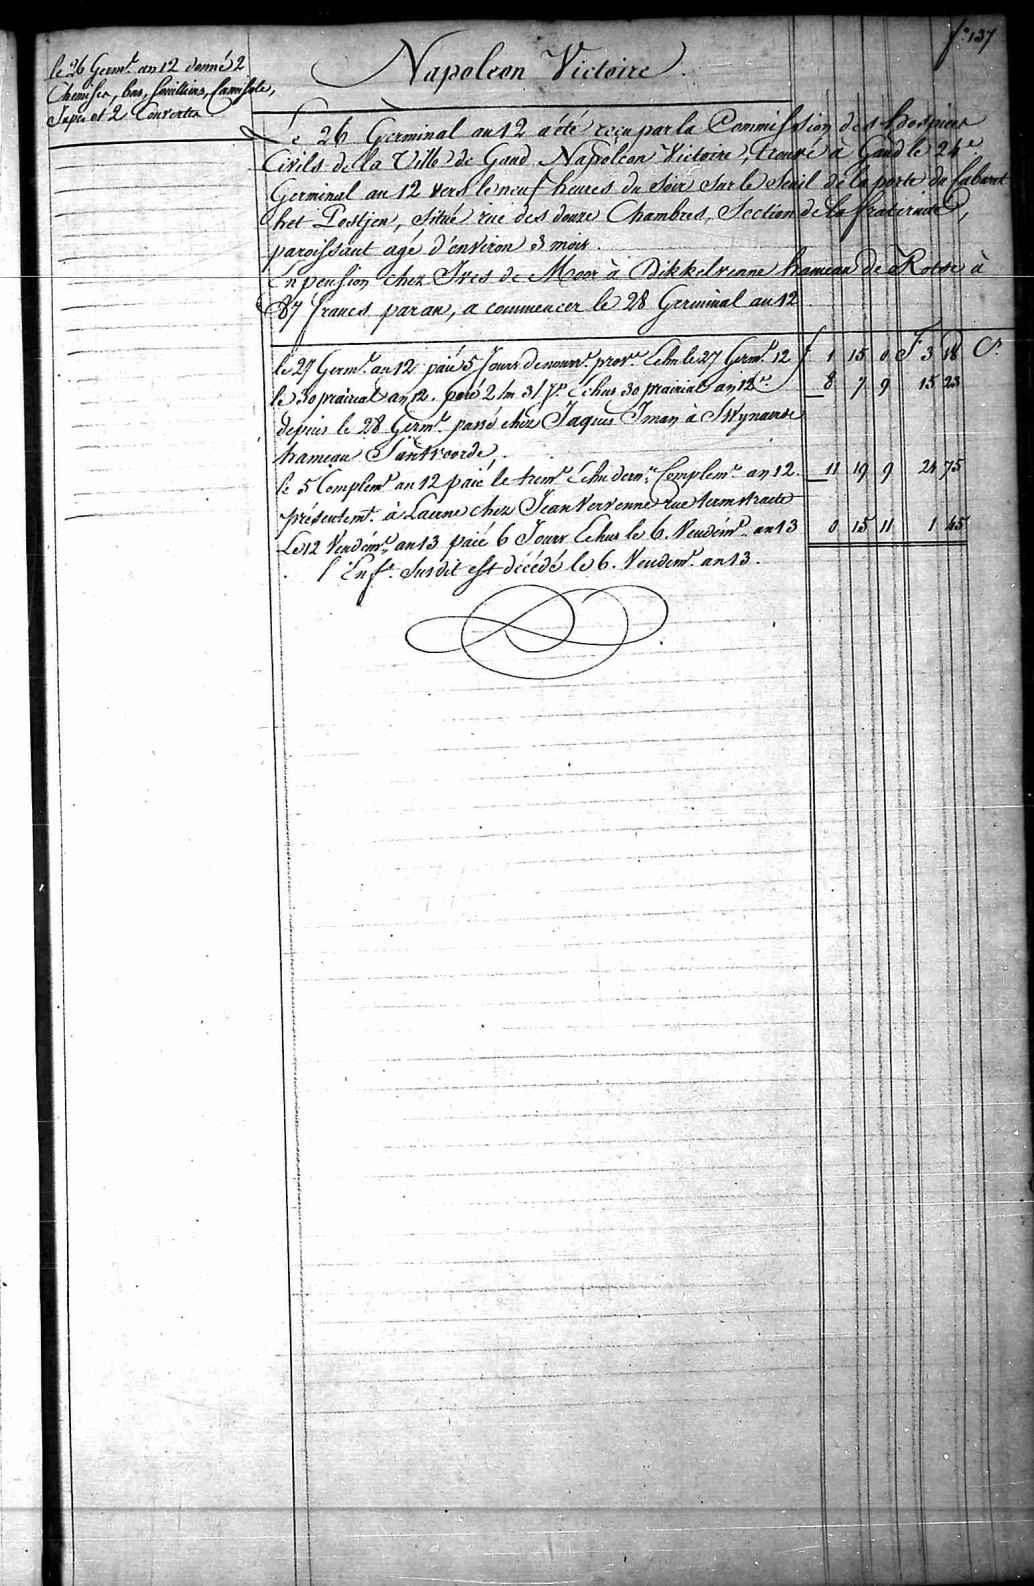 f.º 137
Napoleon Victoire.
le 26 Germ.l an 12 donné 2
Chemises, bas, Camisole,
Jupe et 2 Couvertes
Le 26 Germinal an 12 a été reçu par la Commission des hospices
Civils de la Ville de Gand Napoleon Victoire, trouvé à Gand le 24e
Germinal an 12 vers le neuf heures du Soir sur le Seuil de la porte du Cabaret
het Postjen, Situé rue des douze Chambres, Section de la fraternité,
paroissant agé d'environ 3 mois.
En pension chez Ives de Moor à Dikkelvenne hameau de à
87 francs par an, a commencer le 28 Germinal an 12
le 27 Germ.l an 12 paié 5 Jours de nourr.e prov.e Echu le 27 Germ.l 12 1 15 0 F 3 18 C.s
le 30 prairial an 12. paié 2 / m 3 / j.s Echus 30 prairial an 12e 8 7 9 15 23
depuis le 28 Germ.l passé chez Jaques Iman à Swynaerde
hameau
le 5 Complem.e an 12 paié le trem.e Echu dern.r Complem.e an 12. 11 19 9 24 75
présentem.t à Laerne chez Jean Vervenne rue
Le 12 Vendém.e an 13 paié 6 Jours Echus le 6. Vendém.e an 13 0 15 11 1 45
l'Enf.t Susdit est décédé le 6. Vendem.e an 13.